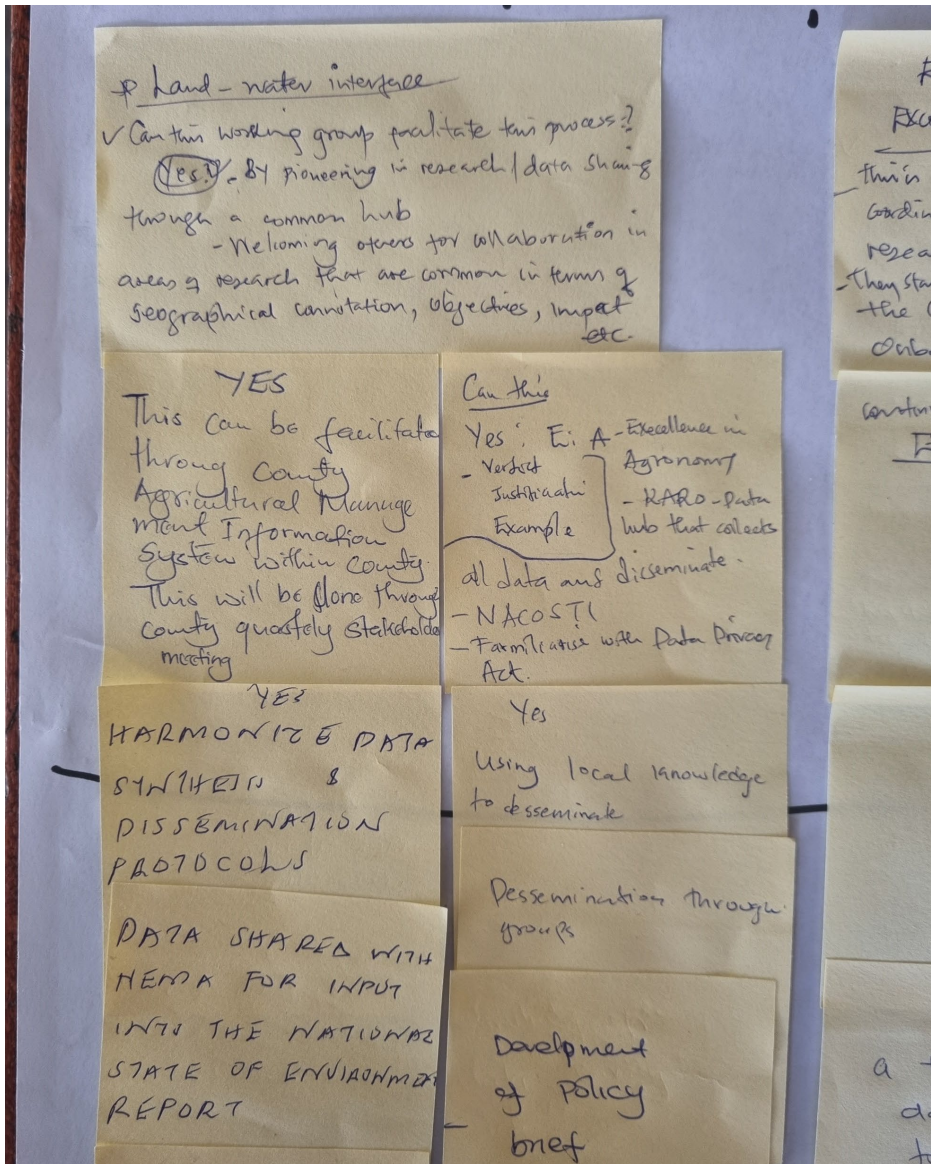 * Land-water interface
✓ Can this working group facilitate this process?
Yes! - By pioneering in research/data sharing
through a common hub
- Welcoming others for collaboration in
areas of research that are common in terms of
geographical connotation, objectives, impact
etc.
YES
This can be facilitate
throug County
Agricultural Manage
ment Information
System within County.
This will be done through
County quartely stakeholde
meeting
Can this
Yes: E: A - Execellence in
Agronomy
- Verdict
Justification
Example
- KARO - Data
hub that collects
all data and disseminate.
- NACOSTI
- Farmiliarise with Data Privacy
Act.
YES
HARMONIZE DATA
SYNTHESIS &
DISSEMINATION
PROTOCOLS
Yes
Using local knowledge
to desseminate
Dessemination through
groups
DATA SHARED WITH
NEMA FOR INPUT
INTO THE NATIONAL
STATE OF ENVIRONMEN
REPORT
Develpment
of Policy
brief
this
resea
They sta
the
Onb
a